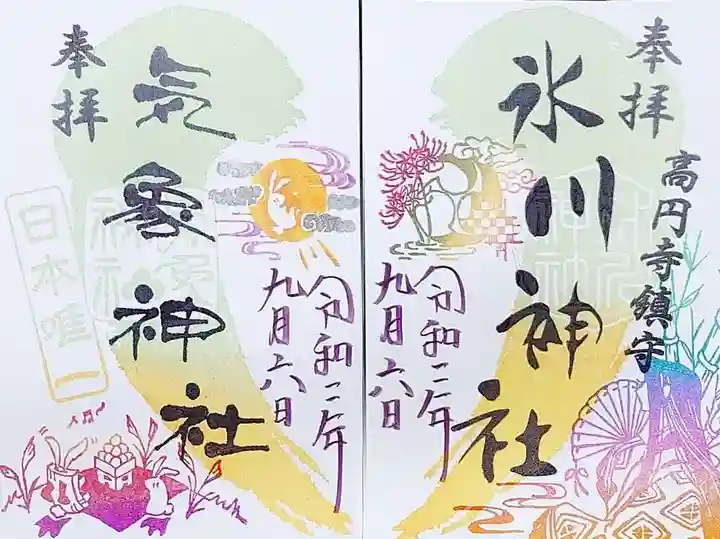 奉拝
高円寺鎮守
氷川神社
令和二年
九月六日
奉拝
気象神社
日本唯一
令和二年
九月六日